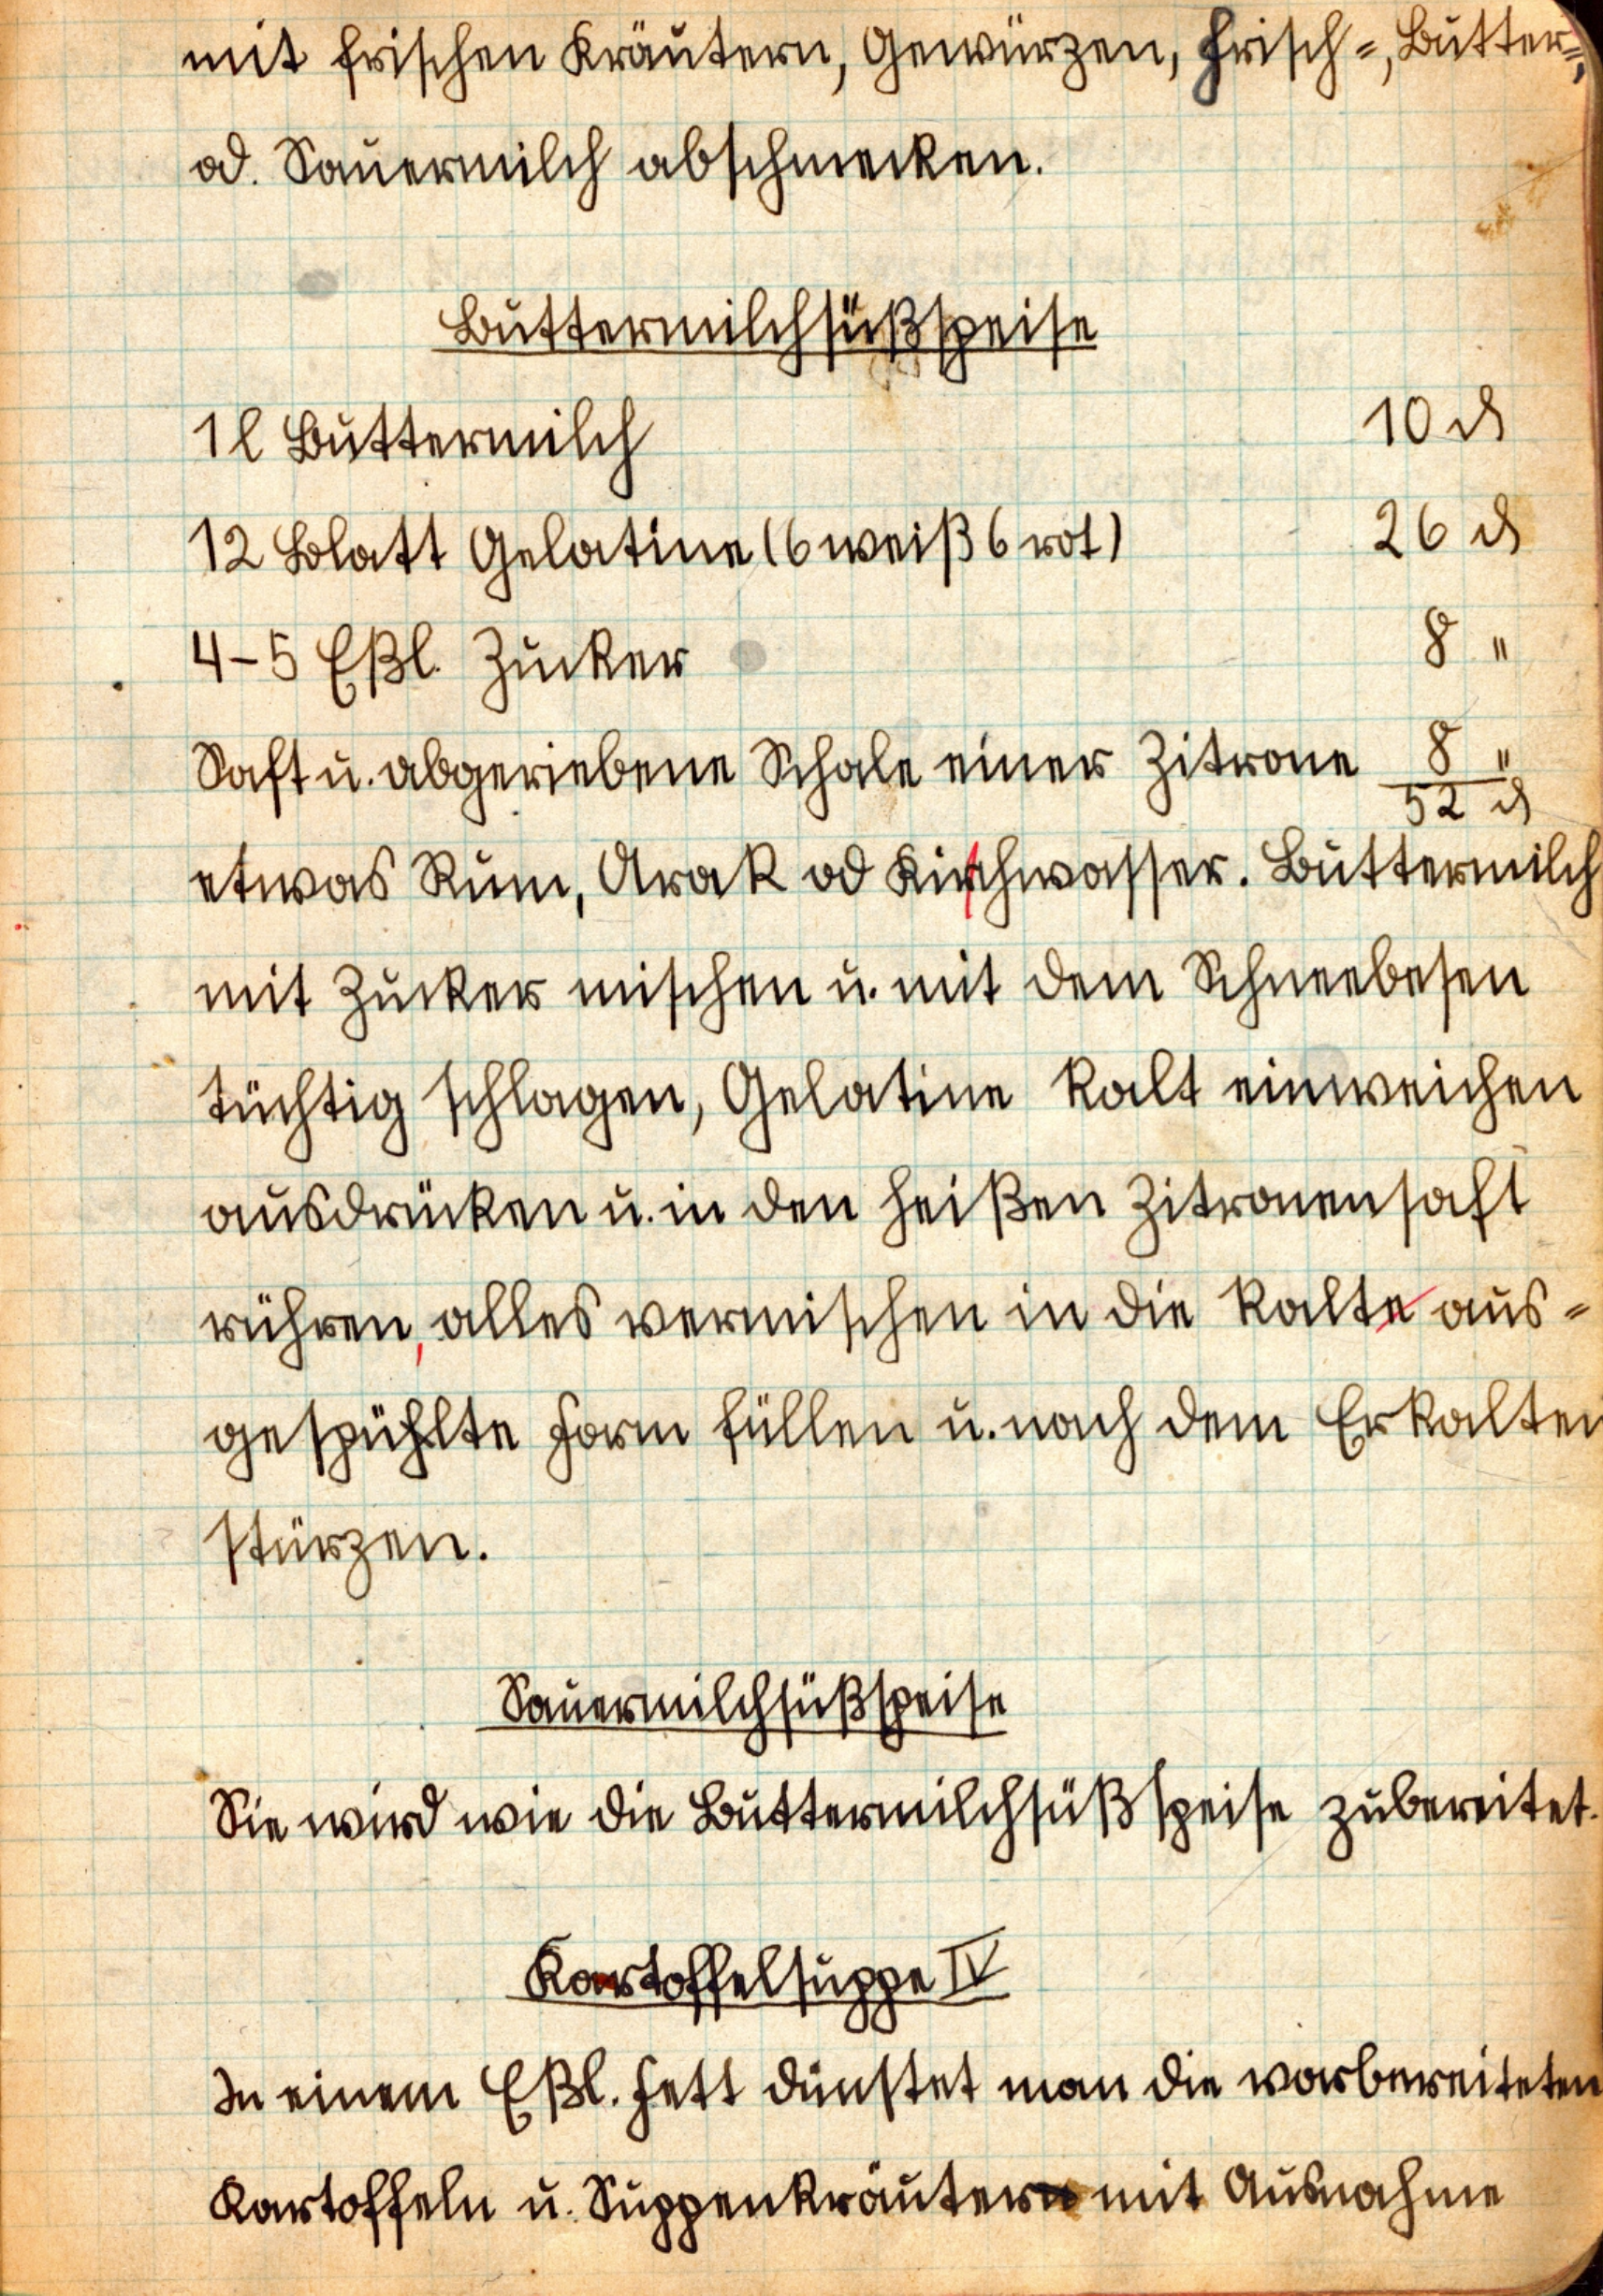 mit frischen Kräutern, Gewürzen, Frisch=, Butter=,
od. Sauermilch abschmecken.
Buttermilchsüßspeise
1 l Buttermilch 10 ₰
12 Blatt Gelatine (6 weiß 6 rot) 26 ₰
4-5 Eßl. Zucker 8 "
Saft u. abgeriebene Schale einer Zitrone 8 "
52 ₰
etwas Rum, Arak od Kirschwasser. Buttermilch
mit Zucker mischen u. mit dem Schneebesen
tüchtig schlagen, Gelatine kalt einweichen
ausdrücken u. in den heißen Zitronensaft
rühren, alles vermischen in die kalte aus=
gespühlte Form füllen u. nach dem Erkalten
stürzen.
Sauermilchsüßspeise
Sie wird wie die Buttermilchsüßspeise zubereitet.
Kartoffelsuppe IV
In einem Eßl. Fett dünstet man die vorbereiteten
Kartoffeln u. Suppenkräuter mit Ausnahme